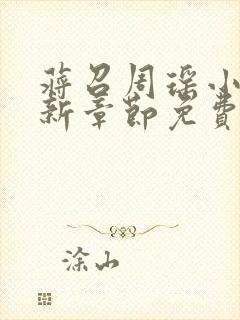 蒋召周瑶小
新章节免费
涂山